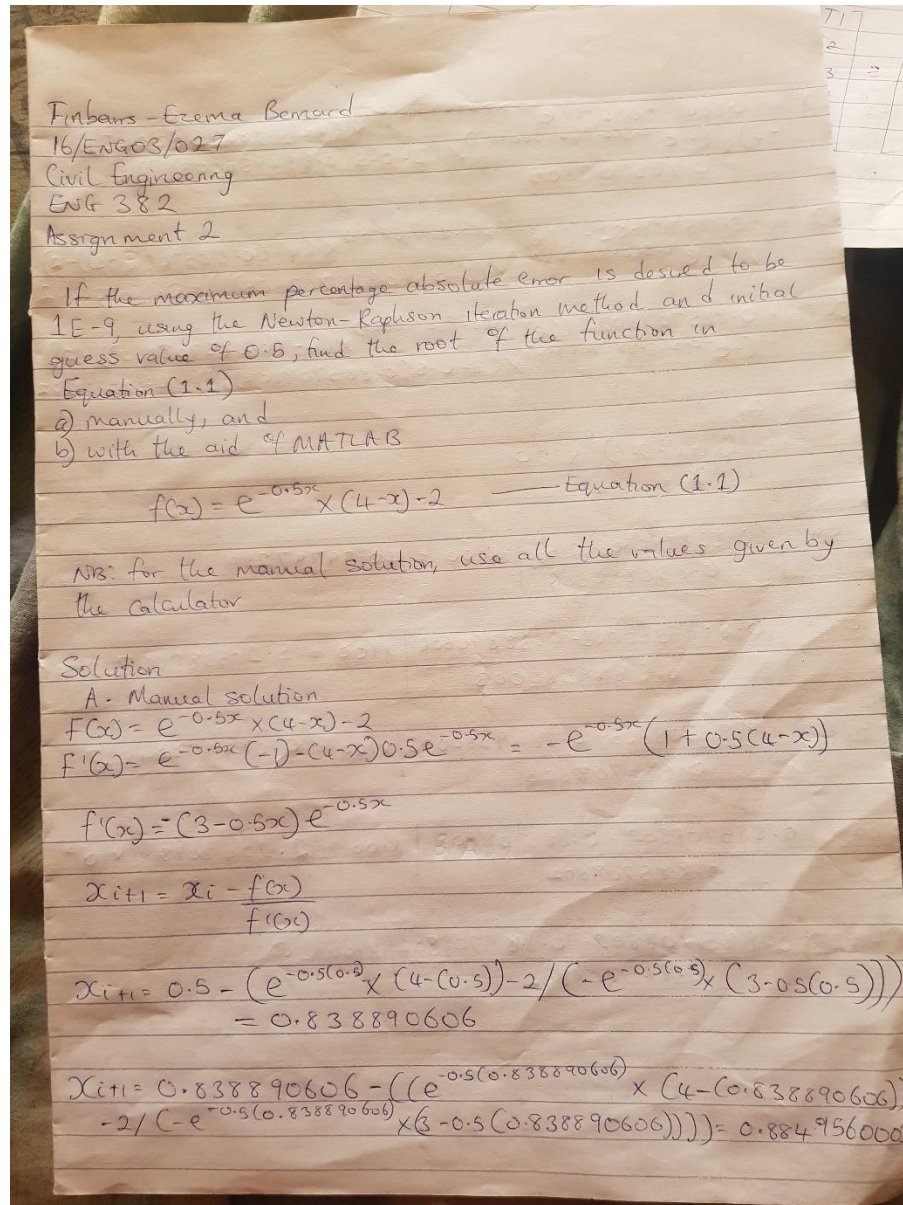 T17
2
3
Finbarrs-Ezema Bernard
16/ENG03/027
Civil Engineering
ENG 382
Assignment 2
If the maximum percentage absolute error is desired to be
1E-9, using the Newton-Raphson iteration method and initial
guess value of 0.5, find the root of the function in
Equation (1.1)
a) manually, and
b) with the aid of MATLAB
f(x) = e^-0.5x × (4-x) - 2 —— Equation (1.1)
NB: for the manual solution, use all the values given by
the calculator
Solution
A - Manual solution
F(x) = e^-0.5x × (4-x) - 2
F'(x) = e^-0.5x (-1) - (4-x)0.5e^-0.5x = -e^-0.5x (1 + 0.5(4-x))
f'(x) = -(3-0.5x) e^-0.5x
xi+1 = xi - f(x)
f'(x)
xi+1 = 0.5 - (e^-0.5(0.5) × (4-(0.5)) - 2/(-e^-0.5(0.5) × (3-0.5(0.5))))
= 0.838890606
xi+1 = 0.838890606 - ((e^-0.5(0.838890606) × (4-(0.838890606))
-2/(-e^-0.5(0.838890606) × (3-0.5(0.838890606)))) = 0.884956000